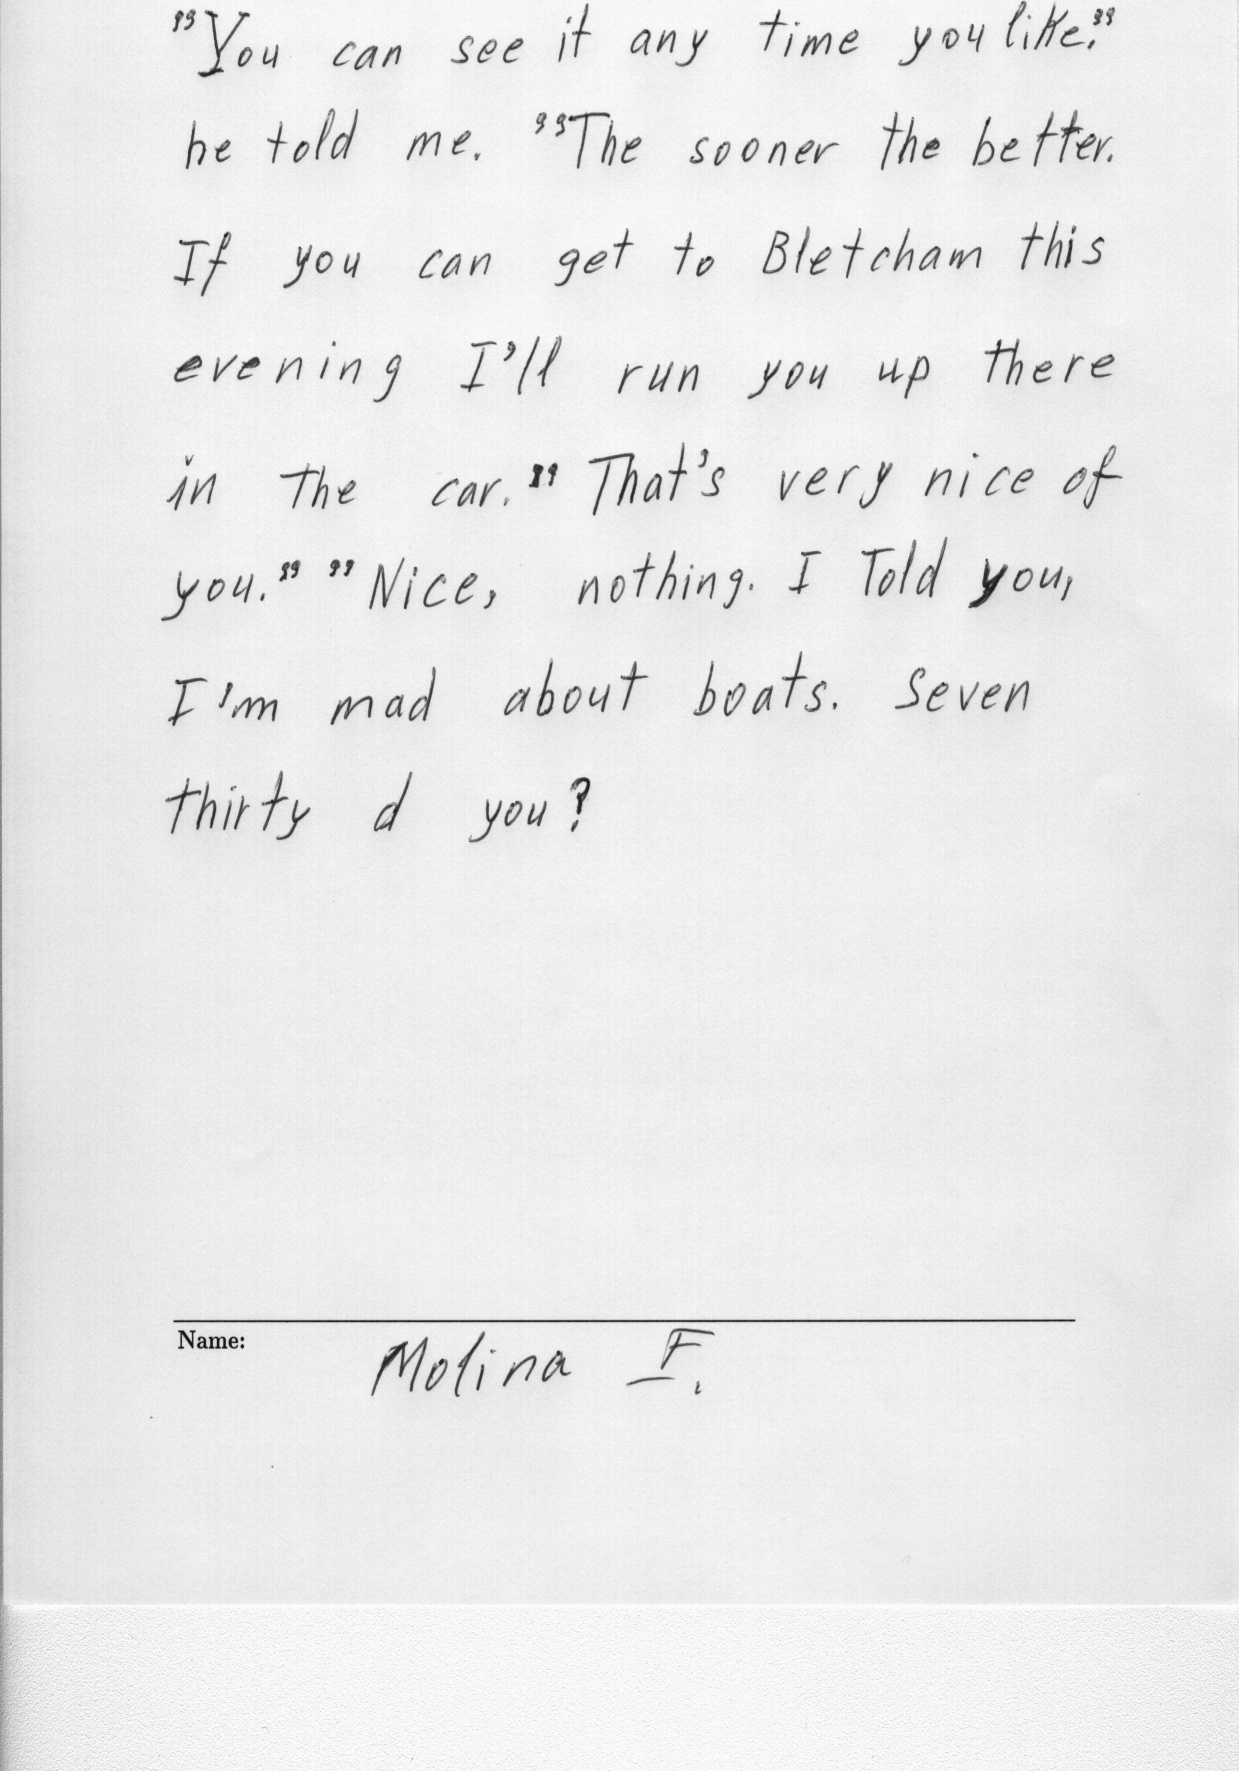 "You can see it any time you like."
he told me. "The sooner the better.
If you can get to Bletcham this
evening I'll run you up there
in the car." That's very nice of
you." "Nice, nothing. I Told you,
I'm mad about boats. Seven
thirty d you?
Name: Molina F.